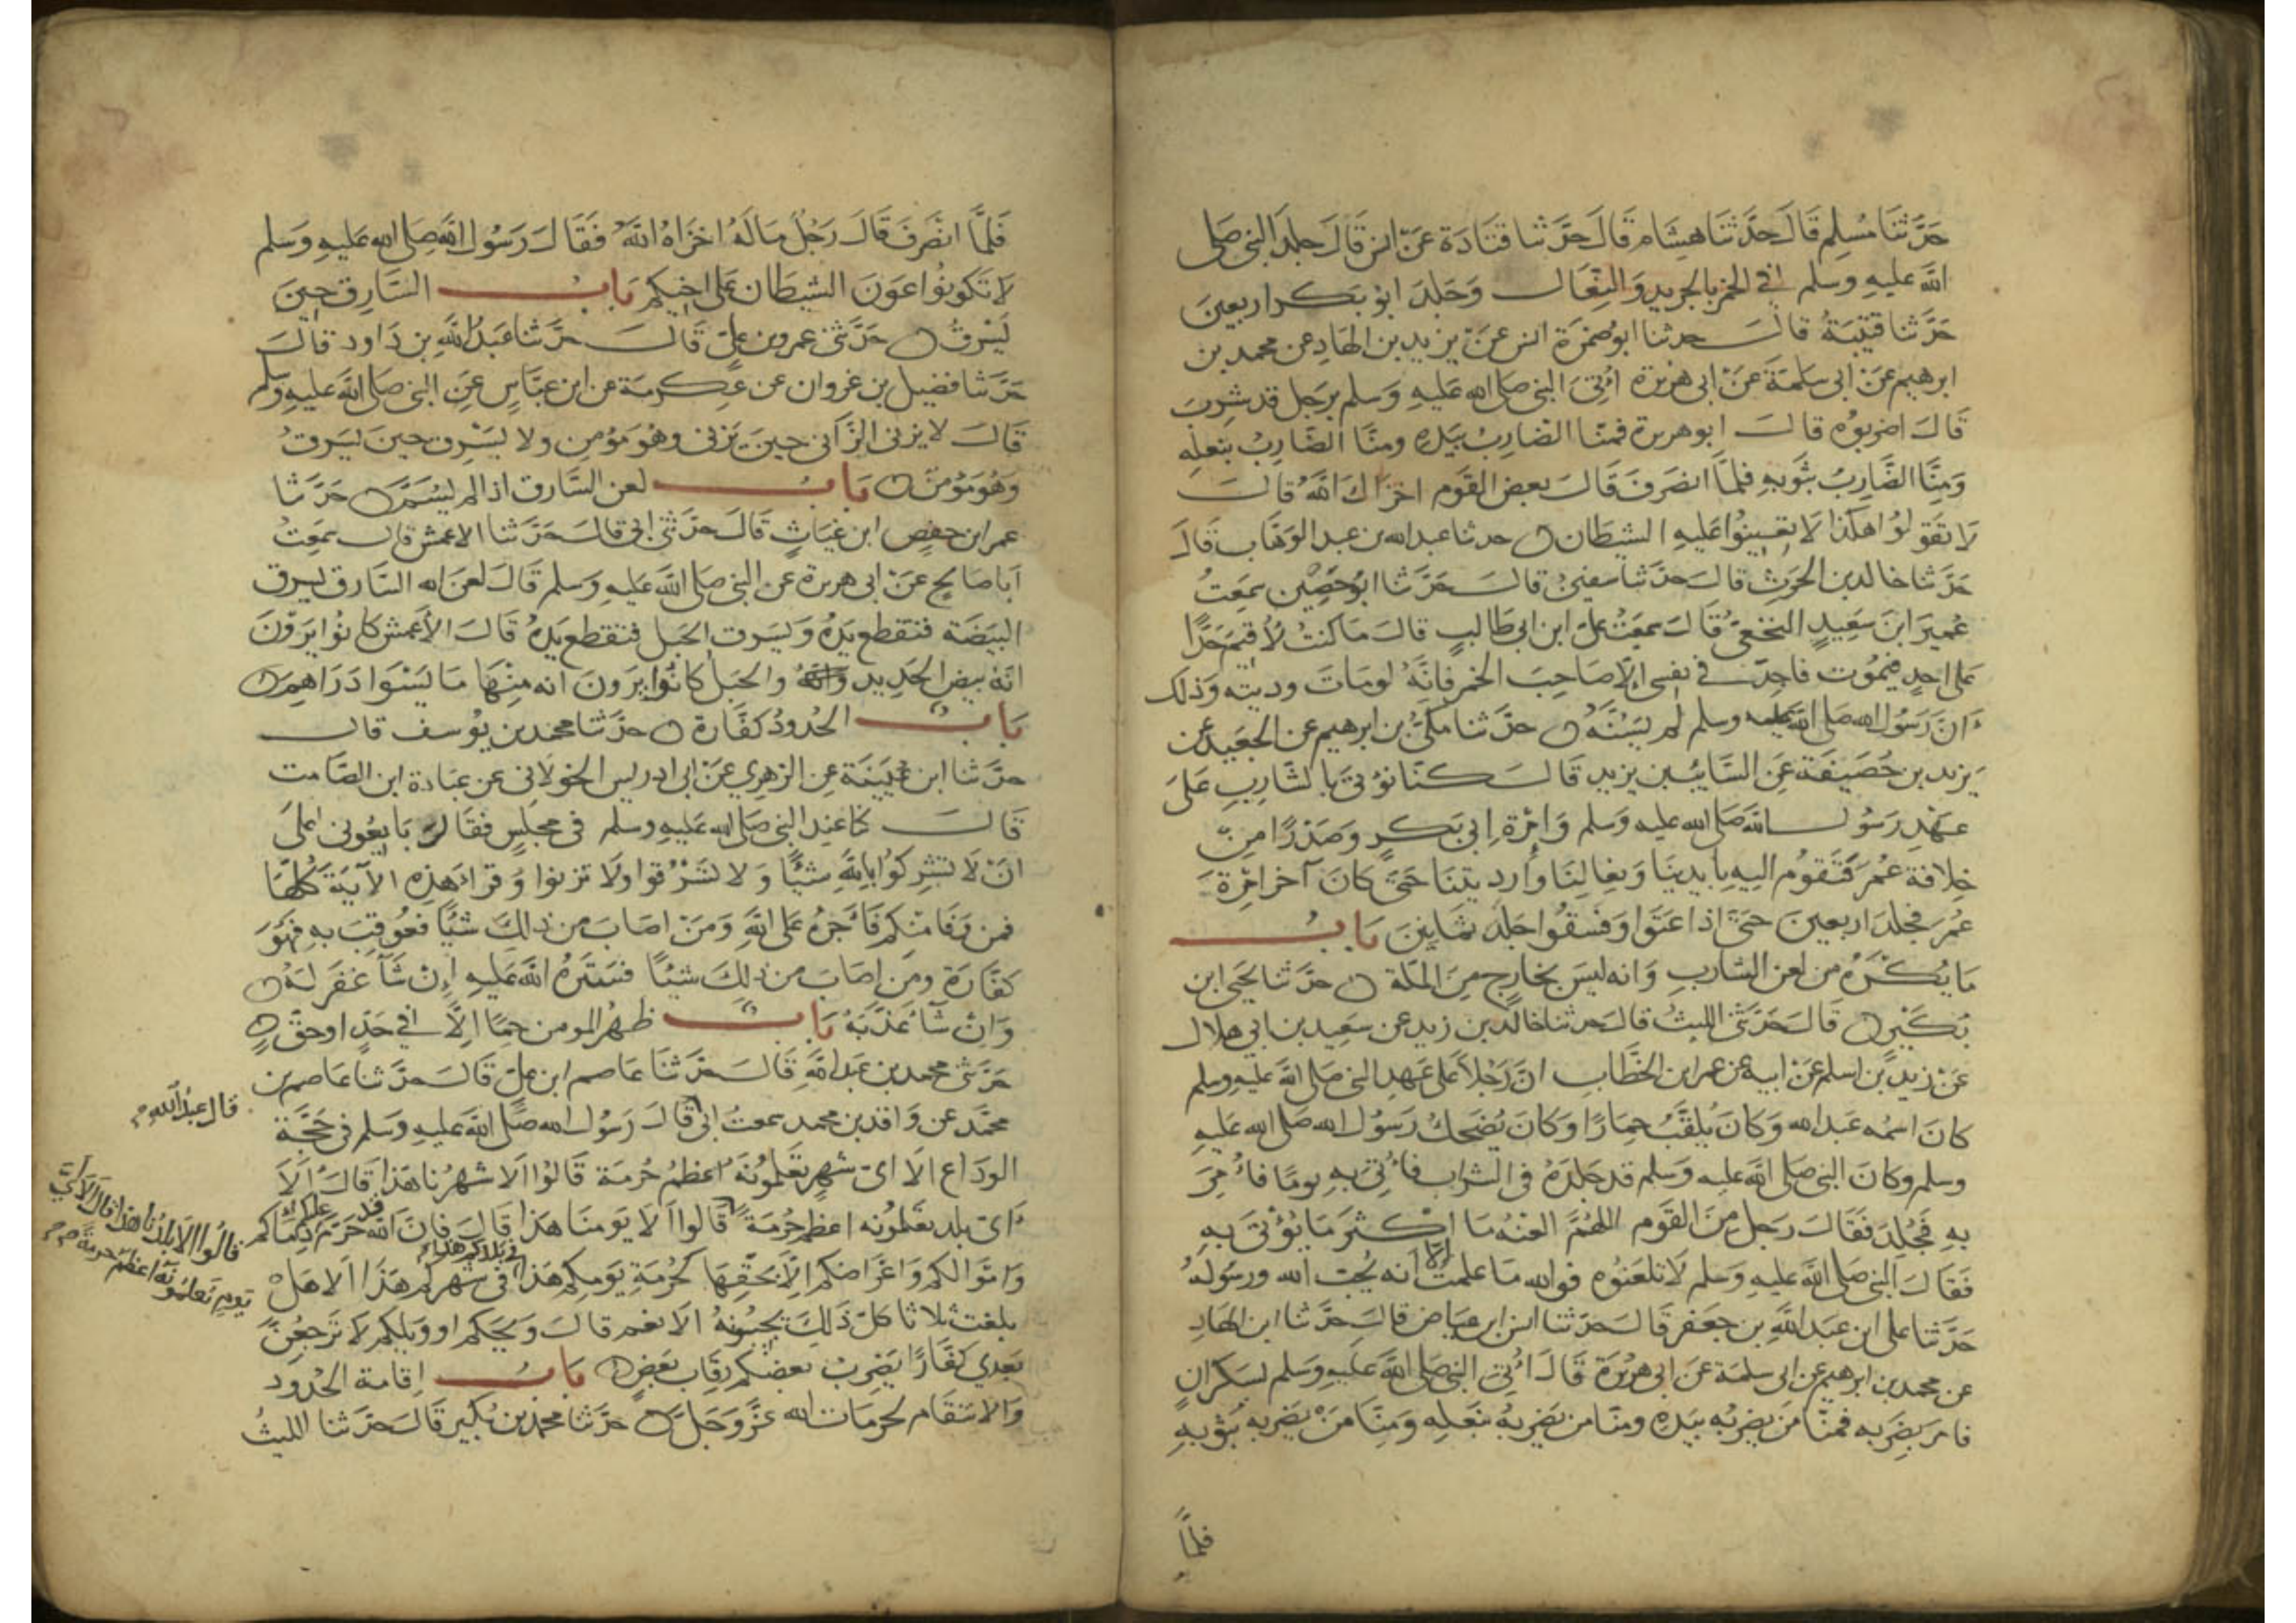 حَدَّثَنَا مُسْلِم قَالَ حَدَّثَنَا هِشَام قَالَ حَدَّثنا قتَادَة عَنْ انس قَالَ جلدَ النبي صَلى
اللَّه عليهِ وسلم في الخمر بالجريدِ وَالنِّعَال وَجَلدَ ابوُ بَكر اربعينَ
حَدَّثنا قتيْبَةُ قالَ حدثنا ابوُضمْرَة انس عَنْ يزيد بن الهَادِ عن محمد بن
ابرهيم عَنْ ابى سَلمَةَ عَنْ ابى هريرة اُتِيَ النبي صَلى الله عَليهِ وَسَلم برَجل قد شرِبَ
قَالَ اضربوُه قالَ ابوهريرة فمنَّا الضاربُ بيَدِه ومنَّا الضَّارِبُ بنعلِه
وَمنَّا الضَّارِبُ بثوبهِ فلمَّا انصَرَفَ قَالَ بعض القَوم اخزَاكَ اللَّهُ قالَ
لَا تقوُلوُا هكذا لا تعينوُا عَليهِ الشيطَان حدثنا عبد الله بن عبد الوَهَّاب قَالَ
حَدَّثنا خالد بن الحَرث قالَ حدَّثنا سفين قالَ حَدَّثنا ابوُحَصِين سمِعَتُ
عُميرَ ابنَ سَعِيدٍ النخَعيَّ قَالَ سمعَتُ علىَّ ابن ابى طَالبٍ قالَ مَا كنتُ لاُقيمَ حَدًّا
عَلى احدٍ فيمُوُت فاجِدَ في نفسى الَّا صَاحِبَ الخمر فانَّهُ لو مَاتَ وديته وَذلك
اَنَّ رَسُول الله صَلى الله عليه وسلم لم يَسُنَّهُ حدَّثنا مَكىُّ بن ابرهيم عن الجعَيد عن
يَزيد بن خُصَيفَة عَن السَّائب بن يزيد قَالَ كنَّا نوُتىَ بالشَّارِب عَلىَ
عهْدِ رَسوُل الله صَلى الله عليه وسلم وَامْرَةِ ابى بَكرٍ وَصَدْرًا مِنْ
خِلافة عُمَر فَنَقوُم اليهِ بايدينَا وَنِعَالِنَا وَاَرديتنَا حَتىَّ كانَ آخر امْرَة
عُمَرَ فجلدَ اربعينَ حتىَّ اذا عَتَوا وَفسَقوُا جَلدَ ثمَانِينَ بَابُ
مَا يُكْرَهُ من لعن الشاربِ وَانه ليسَ بخارِج مِنَ الملَّة حدَّثنا يحيَى ابن
بُكَيْرٍ قَالَ حَدَّثنى الليثُ قالَ حدثنا خالد بن زيد عن سعِيد بن ابى هلال
عَنْ زيد بن اسلم عَنْ ابيه عن عمر ابن الخطَّاب انَّ رَجُلاً عَلى عَهدِ النبي صَلى الله عَليهِ وسلم
كانَ اسمُه عَبد الله وَكانَ يُلقَّبُ حِمَارًا وَكانَ يُضحِكُ رَسوُل الله صَلى الله عَليهِ
وسلم وكانَ النبي صَلى الله عليه وَسلم قد جَلدَهُ في الشَّراب فاُتىَ بهِ يومًا فاُمِرَ
بهِ فَجُلدَ فَقَالَ رَجل منَ القَوم اللهُمَّ العَنْهُ مَا اكثر مَا يُؤتَى بهِ
فَقَالَ النبي صَلى الله عَليه وَسلم لا تلعَنوُه فوالله مَا علمت الا انه يُحِبّ الله ورسوُلهُ
حَدَّثنا على ابن عَبد اللَّهِ بن جَعفر قَالَ حَدَّثنا انس ابن عيَاض قالَ حَدَّثنا ابن الهَادِ
عن محمد بن ابرهيم عن ابى سلمَة عَن ابى هرُيرَة قَالَ اُتِيَ النبي صَلى الله عَليهِ وَسَلم بسَكرَانٍ
فامرَ بضَربهِ فمنَّا مَن يضربُه بيَدِهِ ومنَّا من يَضربهُ بنعَلِه وَمِنَّا مَنْ يَضربه بثَوْبهِ
فلمَّا
فَلمَّا انصَرفَ قَالَ رَجُل مَالَهُ اخزَاهُ اللَّهُ فَقَالَ رَسوُل اللَّهِ صَلى الله عَليهِ وَسَلم
لا تَكونوُا عَونَ الشيطَان عَلى اخيكم بَابُ السَّارق حِينَ
يَسْرقُ حَدَّثنى عمرو بن علىّ قَالَ حَدَّثنا عَبدُ اللَّهِ بن دَاود قالَ
حَدَّثنا فضيل بن غزوان عن عكرمَة عن ابن عبَّاسٍ عَن النبي صَلى الله عَليهِ وسلم
قَالَ لا يزنى الزَّانى حِينَ يَزنى وهُوَ مؤمن ولا يَسْرق حينَ يَسرقُ
وَهُوَ مؤمنٌ بَابُ لعن السَّارق اذا لم يُسَمَّ حَدَّثنا
عمر ابن حفصِ ابن غيَاثٍ قَالَ حدَّثنى ابى قَالَ حَدَّثنا الاعمش قالَ سمعَتُ
اَبا صَالح عَنْ ابى هريرة عن النبي صَلى الله عَليهِ وَسلم قَالَ لعَنَ الله السَّارق يسرق
البيَضَة فتقطع يدَهُ وَيَسرق الحَبل فتقطع يدَهُ قَالَ الأعمش كانوُا يَرَوْنَ
انَّهُ بيض الحَدِيد والحَبل كانوُا يرَونَ انه منِهَا مَا يَسْوَا دَرَاهِمَ
بَابُ الحُدوُد كفَّارة حدَّثنا محمد بن يوُسف قالَ
حدَّثنا ابن عُيَينَة عن الزهرِي عَنْ ابى ادريس الخولانى عن عبَادة ابن الصَّامت
قالَ كنا عندَ النبي صَلى الله عَليهِ وسلم في مجلسٍ فقَالَ بَايعُونى عَلىَ
انْ لا تشركوُا باللَّهِ شيئًا وَلا تسْرقوا ولا تزنوا وَقرَأ هَذِه الآيَة كلّهَا
فمن وَفا منكم فَأجْرُه عَلى اللَّهِ وَمَنْ اصَابَ من ذلكَ شيئًا فعُوقبَ بهِ فهُوَ
كفَّارَة ومَن اصَابَ من ذلِكَ شيئًا فسَتَرَهُ الله عَليهِ إن شَآ غفَر لَهُ
وَانْ شآ عَذبَهُ بَابُ ظهرُ المومن حِمًا الَّا في حَدٍّ اوحَقٍّ
حَدَّثنى محمد بن عَبد اللَّهِ قَالَ حَدَّثنَا عَاصم ابن علىّ قَالَ حَدَّثنا عَاصم بن
محمَّد عن وَاقد بن محمد سمعتُ ابى قَالَ رَسوُل الله صَلى الله عَليهِ وَسَلم في حَجَّة
قال عبدُ اللَّه
الوَدَاع الا اىّ شهرٍ تعْلموُنَهُ اعظمُ حُرمَة قَالوُا اَلا شهرُنا هَذا قَالَ اَلَا
اَىّ بلد تعْلموُنه اعظم حُرمَةً قَالوا اَلا يَومنَا هَذا قَالَ فانَّ اللَّه قد حَرَّم عليكم دِمَاكم
قالُوا اَلا بلدُنا هَذا قال اَلا اىّ
يَوم تَعلموُنَهُ اعظمُ حرمَةً
وَامْوَالكم وَاعْرَاضكم الَّا بحَقّهَا كحُرمَةِ يَومِكم هَذا في بلدكم هذا في شهرِكم هَذا اَلا هَلْ
بلغت ثلاثا كلّ ذَلكَ يجيبُونهُ اَلا نعَم قالَ وَيحَكم او وَيلكم لا تَرجعُنَّ
بعَدى كفَّارًا يَضربُ بعضكم رقَاب بَعضٍ بَابُ إقامة الحُدوُد
وَالانتقَام لحرمَات الله عَزَّ وَجَلَّ حَدَّثنا محمد بن بُكير قَالَ حَدَّثنا الليثُ